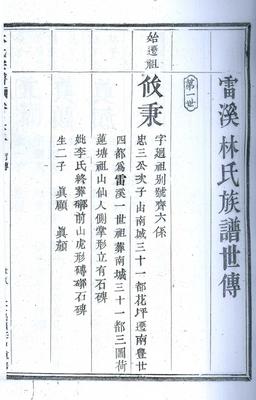 雷溪林氏族譜世傳
第一世
始遷祖
攸秉
字廻祖別號齊六係
忠三公次子由南城三十一都花坪遷南豊廿
四都為雷溪一世祖葬南城三十一都三圖荷
蓮塘祖山仙人側掌形立有石碑
姚李氏終葬塟前山虎形磚塟石碑
生二子 真願 真顏